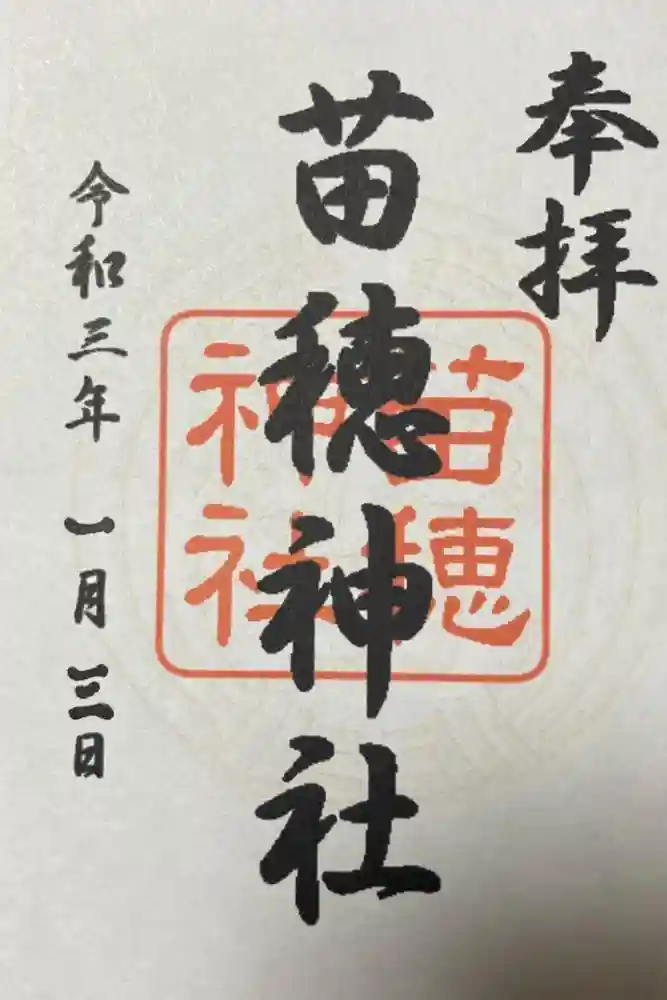 奉拝
苗穂神社
苗穂
神社
令和三年 一月 三日